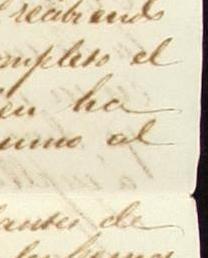 recibiendo
mpleto el
en ha
umo al
antes de